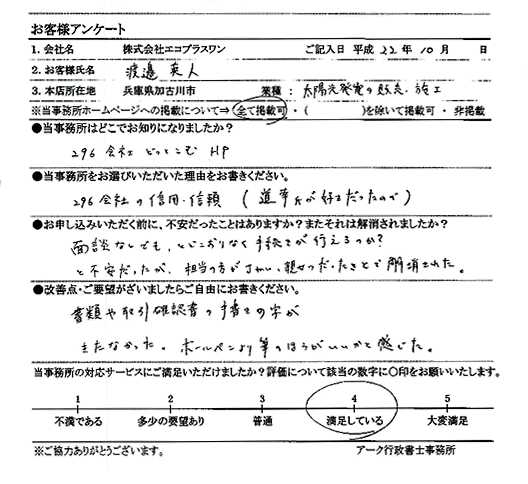 お客様アンケート
1. 会社名 株式会社エコプラスワン ご記入日 平成 22年 10月 日
2. お客様氏名 渡邉 英人
3. 本店所在地 兵庫県加古川市 業種： 太陽光発電の販売・施工
※当事務所ホームページへの掲載について⇒ 全て掲載可 ・( )を除いて掲載可 ・ 非掲載
●当事務所はどこでお知りになりましたか？
296 会社 どっとこむ HP
●当事務所をお選びいただいた理由をお書きください。
296会社の信用・信頼 ( 道幸氏が好きだったので )
●お申し込みいただく前に、不安だったことはありますか？またそれは解消されましたか？
面談なしでも、とどこおりなく手続きが行えるのか？
と不安だったが、担当の方がきれい、親切だったことで解消された。
●改善点・ご要望がざいましたらご自由にお書きください。
書類や取引確認書の手書きの字が
きたなかった。ボールペンより筆のほうがいいかと感じた。
当事務所の対応サービスにご満足いただけましたか？評価について該当の数字に○印をお願いいたします。
1 2 3 4 5
不満である 多少の要望あり 普通 満足している 大変満足
※ご協力ありがとうございます。 アーク行政書士事務所